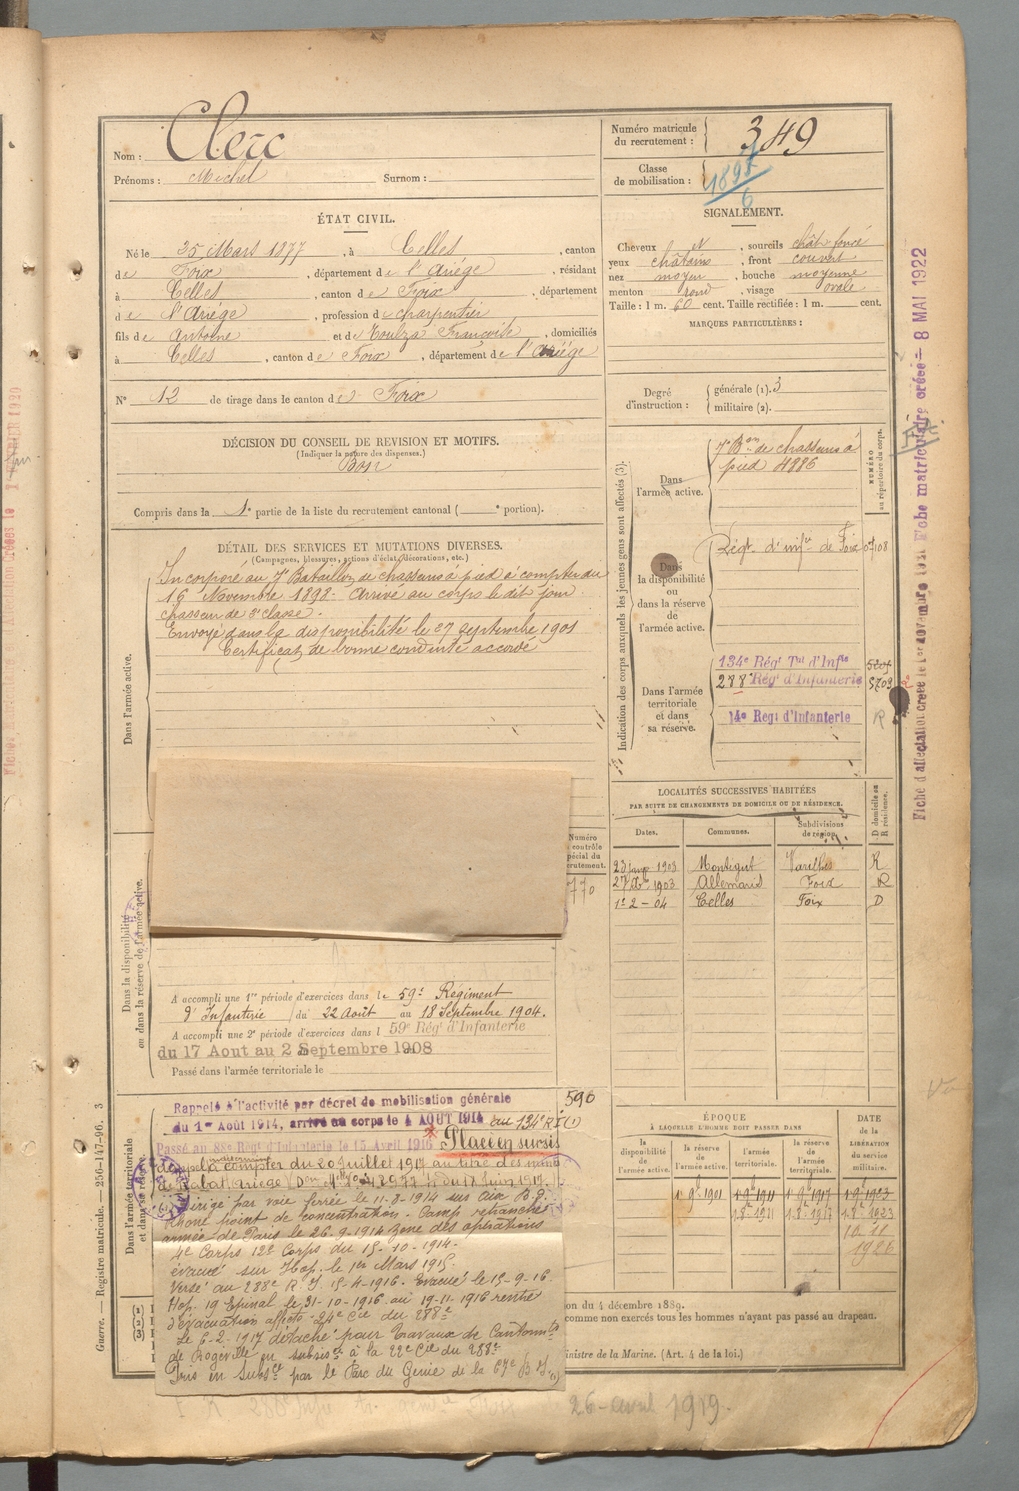 Nom : Clerc
Prénoms : Michel Surnom :
Numéro matricule du recrutement : 349
Classe de mobilisation : 1897
6
ÉTAT CIVIL.
Né le 25 Mars 1877, à Celles, canton
de Foix, département de l'Ariége, résidant
à Celles, canton de Foix, département
de l'Ariége, profession de charpentier
fils de Antoine et de Toulza Françoise, domiciliés
à Celles, canton de Foix, département de l'Ariége
N° 12 de tirage dans le canton de Foix
SIGNALEMENT.
Cheveux N, sourcils chât. foncé
yeux châtains, front couvert
nez moyen, bouche moyenne
menton rond, visage ovale
Taille : 1 m. 60 cent. Taille rectifiée : 1 m. cent.
MARQUES PARTICULIÈRES :
Degré d'instruction : générale (1). 3
militaire (2).
DÉCISION DU CONSEIL DE REVISION ET MOTIFS.
(Indiquer la nature des dispenses.)
Bon
Compris dans la 1e partie de la liste du recrutement cantonal ( e portion).
DÉTAIL DES SERVICES ET MUTATIONS DIVERSES.
(Campagnes, blessures, actions d'éclat, décorations, etc.)
Dans l'armée active.
Incorporé au 7e Bataillon de chasseurs à pied à compter du
16 Novembre 1898. Arrivé au corps le dit jour
chasseur de 2e classe.
Envoyé dans la disponibilité le 27 septembre 1901
Certificat de bonne conduite accordé
Indication des corps auxquels les jeunes gens sont affectés (3).
NUMÉRO au répertoire du corps.
Dans l'armée active.
7e Bon de chasseurs à
pied 4886
Dans la disponibilité ou dans la réserve de l'armée active.
Régt. d'infie de Foix
Dans l'armée territoriale et dans sa réserve.
134e Rég Tal d'Infie
288e Rég d'Infanterie
14e Reg: d'Infanterie R
LOCALITÉS SUCCESSIVES HABITÉES
PAR SUITE DE CHANGEMENTS DE DOMICILE OU DE RÉSIDENCE.
Dates. Communes. Subdivisions de région. D domicile ou R résidence.
23 1903 Montégut Varilhes R
27 1903 Allemans Foix R
1-2-04 Celles Foix D
Dans la disponibilité ou dans la réserve de l'armée active.
770
A accompli une 1re période d'exercices dans le 59e Régiment
d'Infanterie du 22 Août au 18 Septembre 1904.
A accompli une 2e période d'exercices dans l 59e Rég d'Infanterie
du 17 Aout au 2 Septembre 1908
Passé dans l'armée territoriale le
Dans l'armée territoriale et dans sa réserve
Rappelé à l'activité par décret de mobilisation générale 590
du 1er Août 1914, arrivé au corps le 4 AOUT 1914 au 134e RI (1)
Passé au 88e Régt d'Infanterie le 15 Avril 1916 Placé en sursis
d'appel à compter du 20 juillet 1917 au titre des mines
de Rabat Ariège du 17 Juin 1917.
Dirigé par voie ferrée le 11-8-1914 sur Aix B. d.
Rhône point de concentration. Camp retranché
armée de Paris le 26-9-1914 zone des opérations
4e Corps 12e Corps du 15-10-1914-
évacué sur Hop. le 1er Mars 1915.
Versé au 288e R I 15-4-1916. Evacué le 15-9-16.
Hop. 19 Epinal le 31-10-1916 au 19-11-1916 rentré
d'évacuation affecté 24e Cie du 288e
Le 6-2-1917 détaché pour travaux de Cantonnts
de Rogeville en subsisce à la 22e Cie du 288e
Pris en Subsce par le Parc du Génie de la 67e D. I. (1)
ÉPOQUE
À LAQUELLE L'HOMME DOIT PASSER DANS
la disponibilité de l'armée active. la réserve de l'armée active. l'armée territoriale. la réserve de l'armée territoriale. DATE de la LIBÉRATION du service militaire.
1er 9e 1901 1-9e-1911 1er 9e 1917 1er 9e 1923
1.8e-1911 1.8e-1917 1.8e 1923
10. 11
1926
on du 4 décembre 1889.
comme non exercés tous les hommes n'ayant pas passé au drapeau.
inistre de la Marine. (Art. 4 de la loi.)
26-avril 1919.
Guerre. — Registre matricule. — 256-147-96. 3
Fiche d'affectation créée le 1er novembre Fiche matriculaire créée - 8 MAI 1922